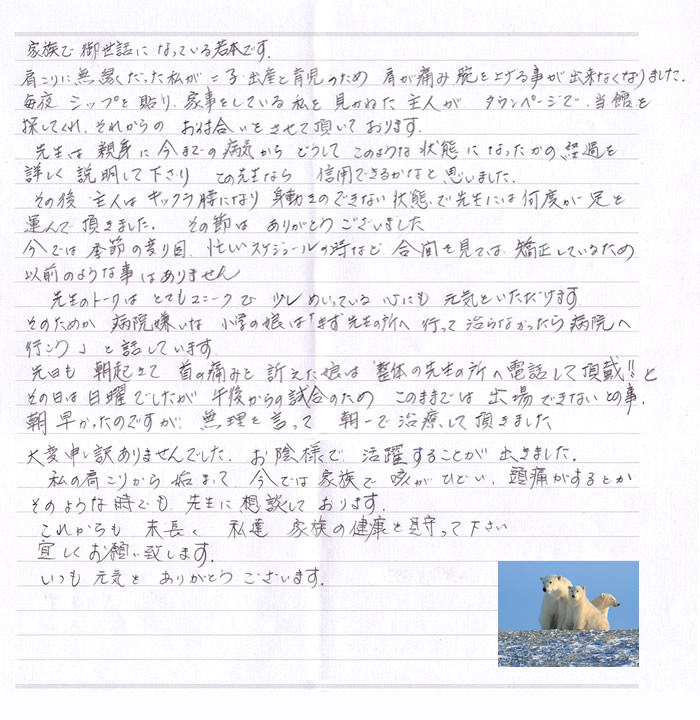 家族で御世話になっている若本です.
肩こりに無縁だった私が二子出産と育児のため 肩が痛み腕を上げる事が出来なくなりました.
毎夜 シップを貼り、家事をしている私を見かねた主人が、タウンページで、当館を
探してくれ、それからのお付合いをさせて頂いております.
先生は親身に今までの病気からどうしてこのような状態になったかの経過を
詳しく説明して下さり この先生なら 信用できるかなと思いました.
その後 主人はギックリ腰になり身動きのできない状態で先生には何度か足を
運んで頂きました. その節はありがとうございました
今では季節の変り目、忙しいスケジュールの時など合間を見ては、矯正しているため
以前のような事はありません
先生のトークはとてもユニークで 少しめいっている心にも元気をいただけます
そのためか 病院嫌いな 小学の娘は「まず先生の所へ行って治らなかったら病院へ
行こう」と話しています
先日も朝起きて首の痛みを訴えた娘は"整体の先生の所へ電話して頂戴!!と
その日は日曜でしたが午後からの試合のため このままでは出場できないとの事.
朝早かったのですが、無理を言って 朝一で治療して頂きました
大変申し訳ありませんでした. お陰様で活躍することが出きました.
私の肩こりから始まって、今では家族で咳がひどい、頭痛がするとか
そのような時でも先生に相談しております.
これからも 末長く 私達 家族の健康を見守って下さい
宜しくお願い致します.
いつも元気を ありがとうございます.